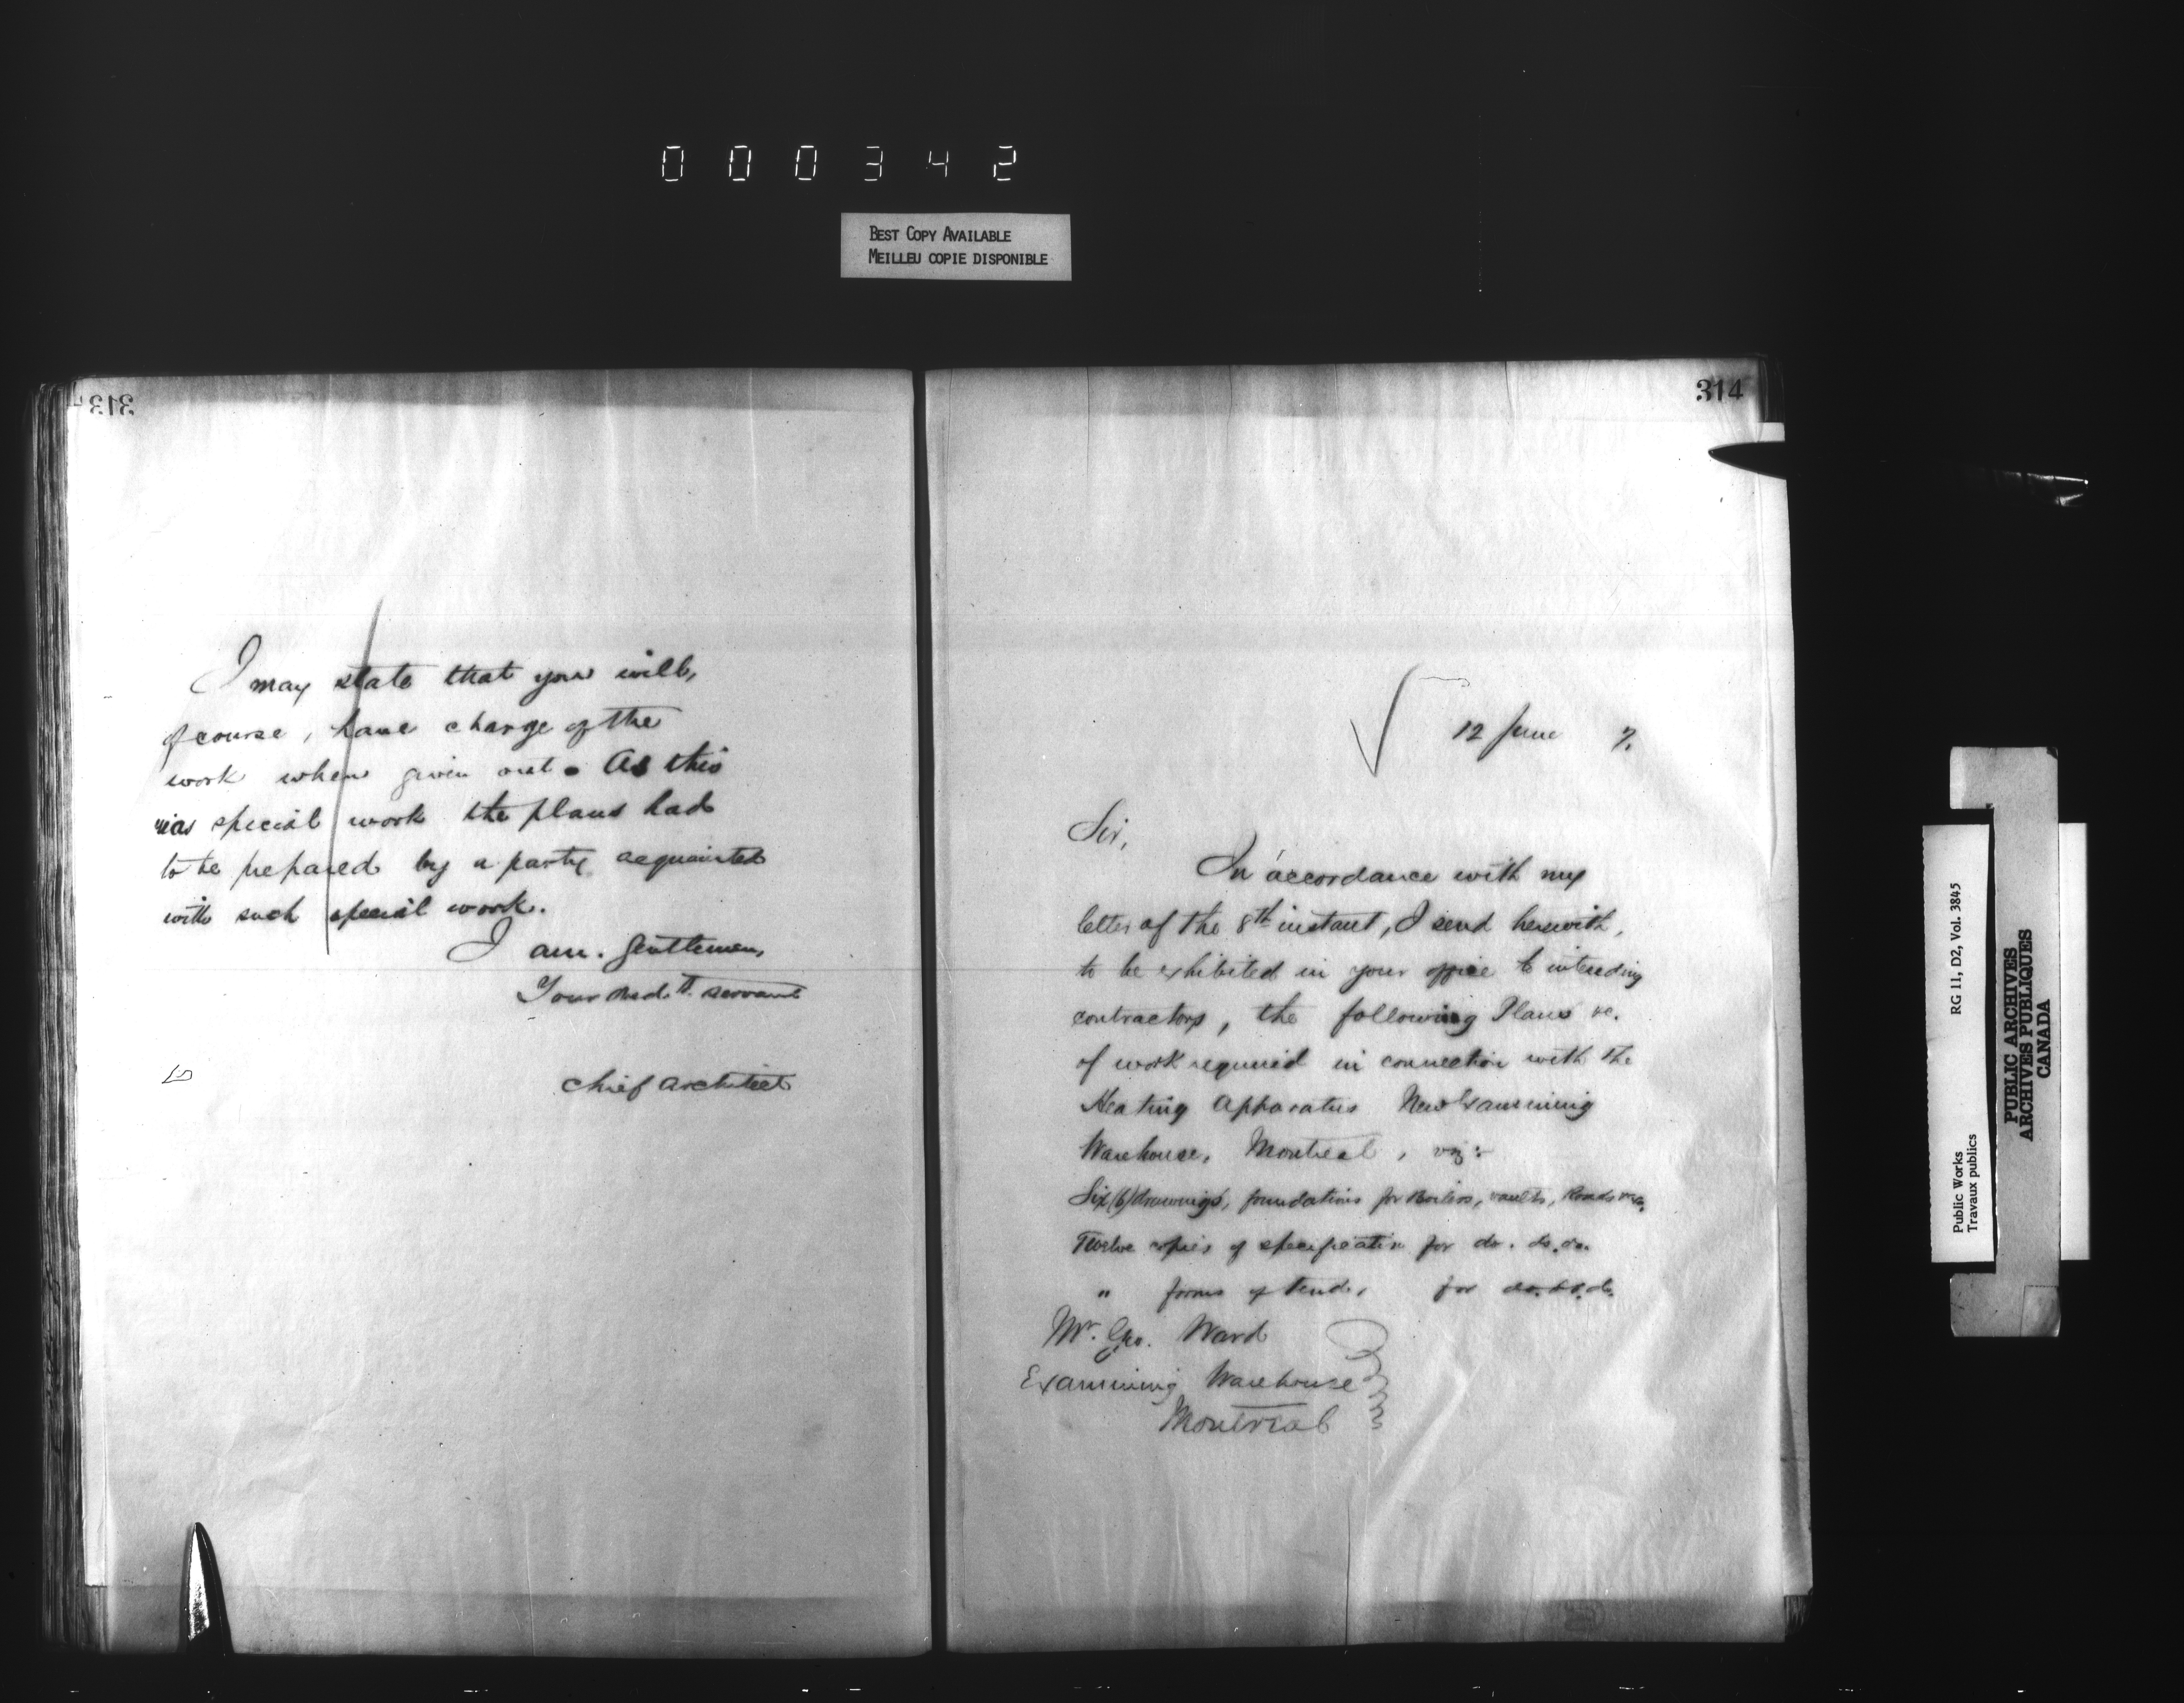 000342
BEST COPY AVAILABLE
MEILLEU COPIE DISPONIBLE
313
I may state that you will,
of course, have charge of the
work when given out. As this
was special work the plans had
to be prepared by a party acquainted
with such special work.
I am. Gentlemen,
Your obed.t servant
Chief Architect
314
12 June 7.
Sir,
In accordance with my
letter of the 8th instant, I send herewith,
to be exhibited in your office to intending
contractors, the following Plans &c.
of work required in connection with the
Heating Apparatus New Examining
Warehouse, Montreal, viz:-
Six (6) drawings, foundations for Boilers, vaults,
Twelve copies of specification for do. do. do.
" forms of tender for do. do. do.
Mr. Geo. Ward
Examining Warehouse
Montreal
Public Works RG 11, D2, Vol. 3845
Travaux publics
PUBLIC ARCHIVES
ARCHIVES PUBLIQUES
CANADA